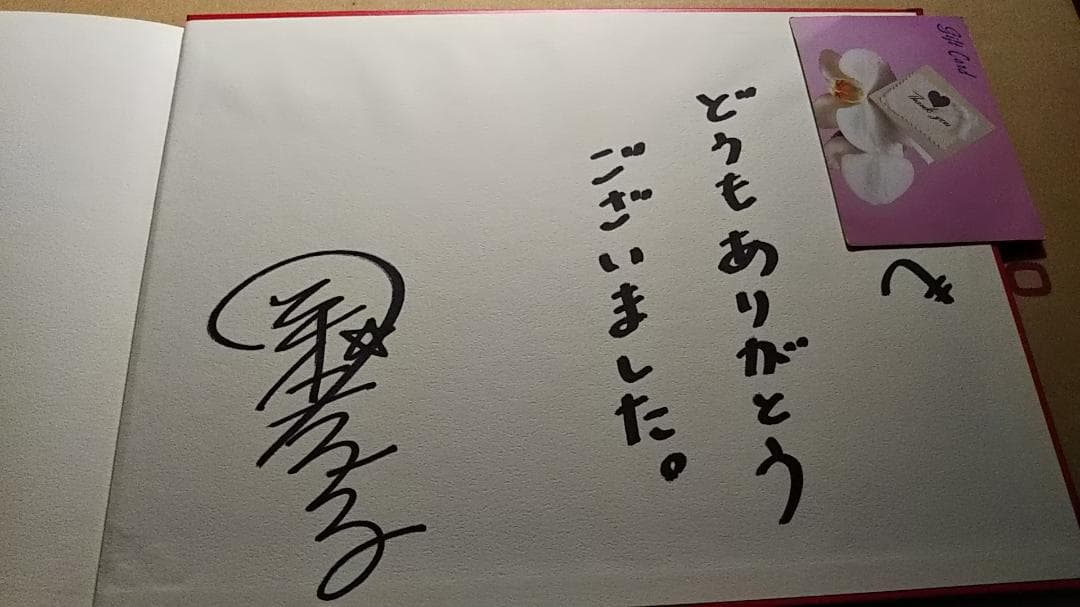 き
どうもありがとう
ございました。
Gift Card
Thank you